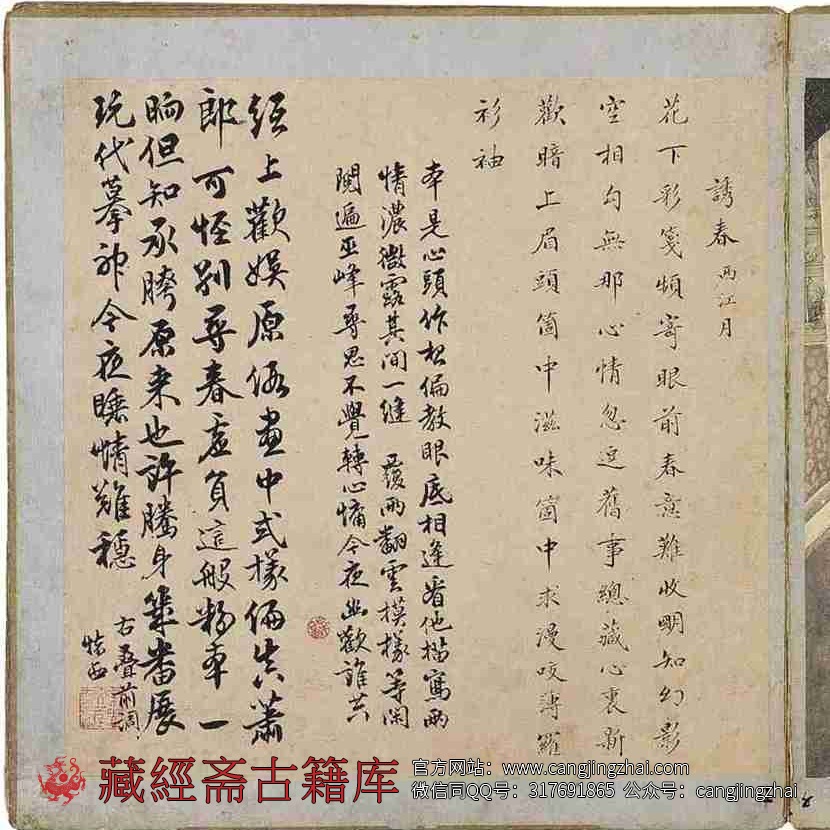 誘春 西江月
花下彩箋頻寄眼前春意難收明知幻影
空相勾無那心情忽逗舊事總藏心裏新
歡暗上眉頭箇中滋味箇中求漫咬薄羅
衫袖
本是心頭作偏教眼底相逢看他描寫兩
情濃微露其間一縫 覆雨翻雲模樣等閑
閱遍巫峰尋思不覺轉心慵今夜幽歡誰共
紙上歡娛原假畫中式樣偏真蕭
郎可怪別尋春虛負這般粉本一
晌但知承原來也許騰身幾番展
玩代摹神今夜睡情難穩
右疊前調
藏經斋古籍库
官方网站：www.cangjingzhai.com
微信同QQ号：317691865 公众号：cangjingzhai